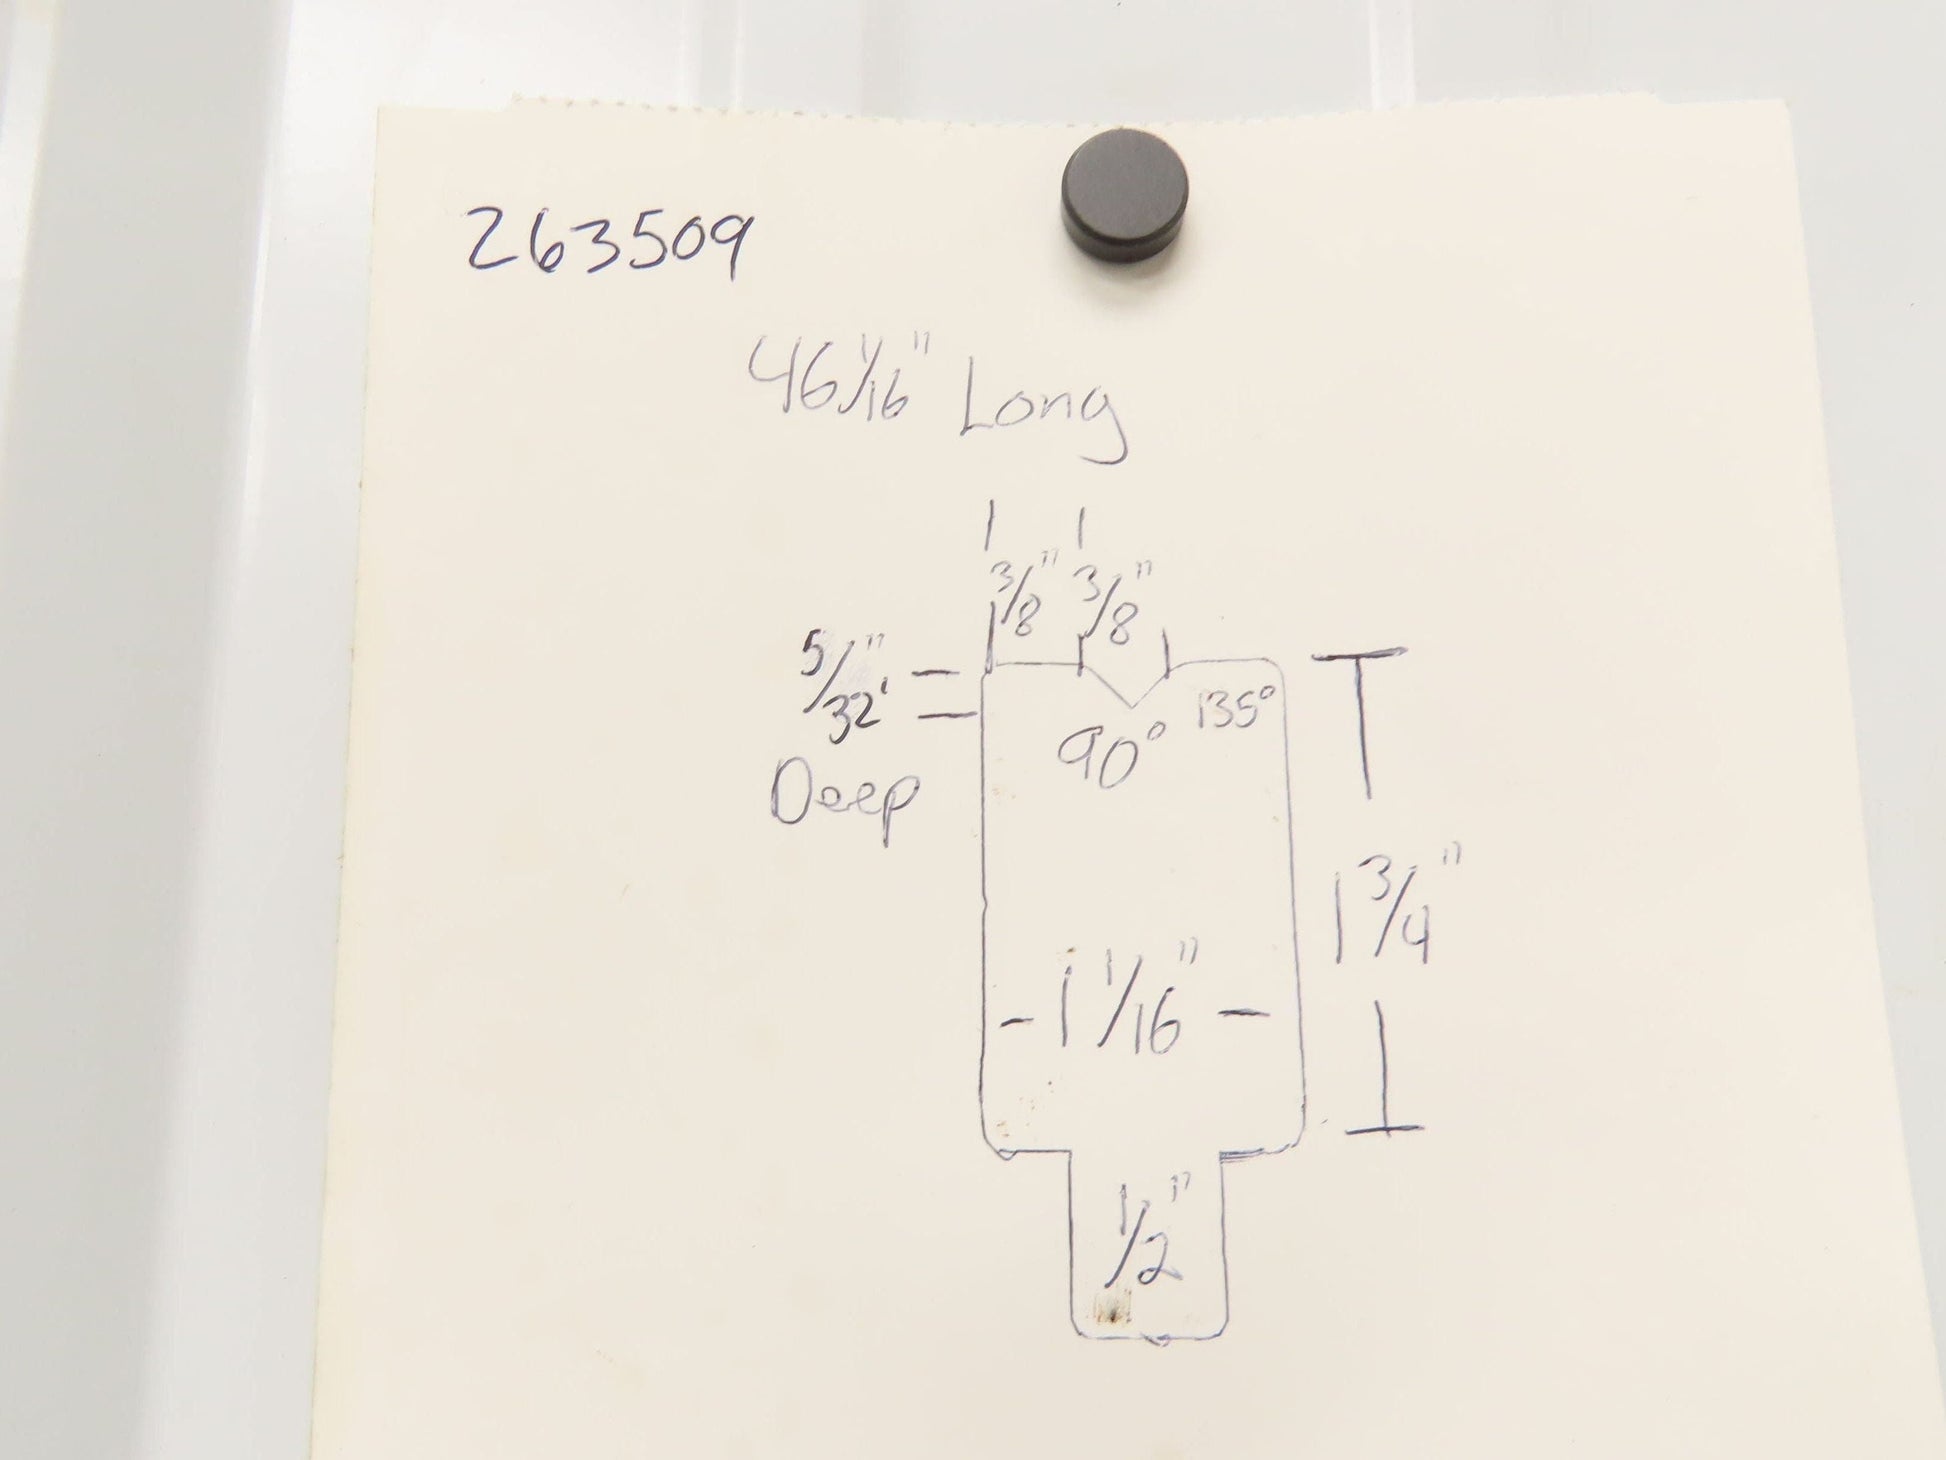 263509
46 1/16" Long
3/8" 3/8"
5/32"
Deep
90° 135°
1 3/4"
- 1 1/16" -
1/2"